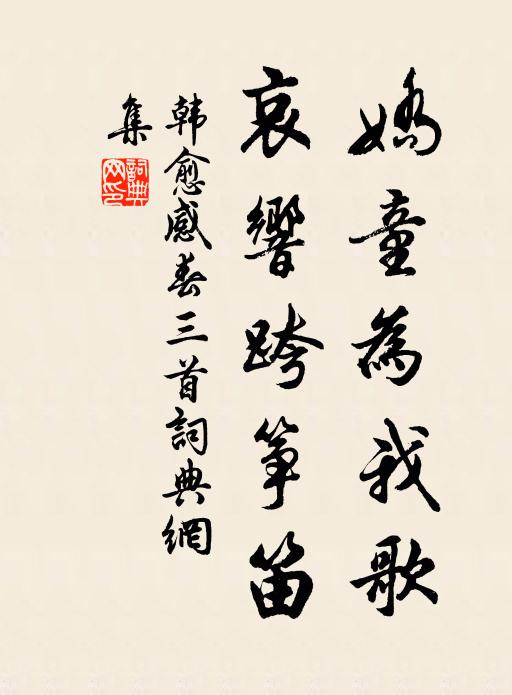 嬌童為我歌
哀響跨箏笛
韩愈感春三首詞典網
集
詞典網印